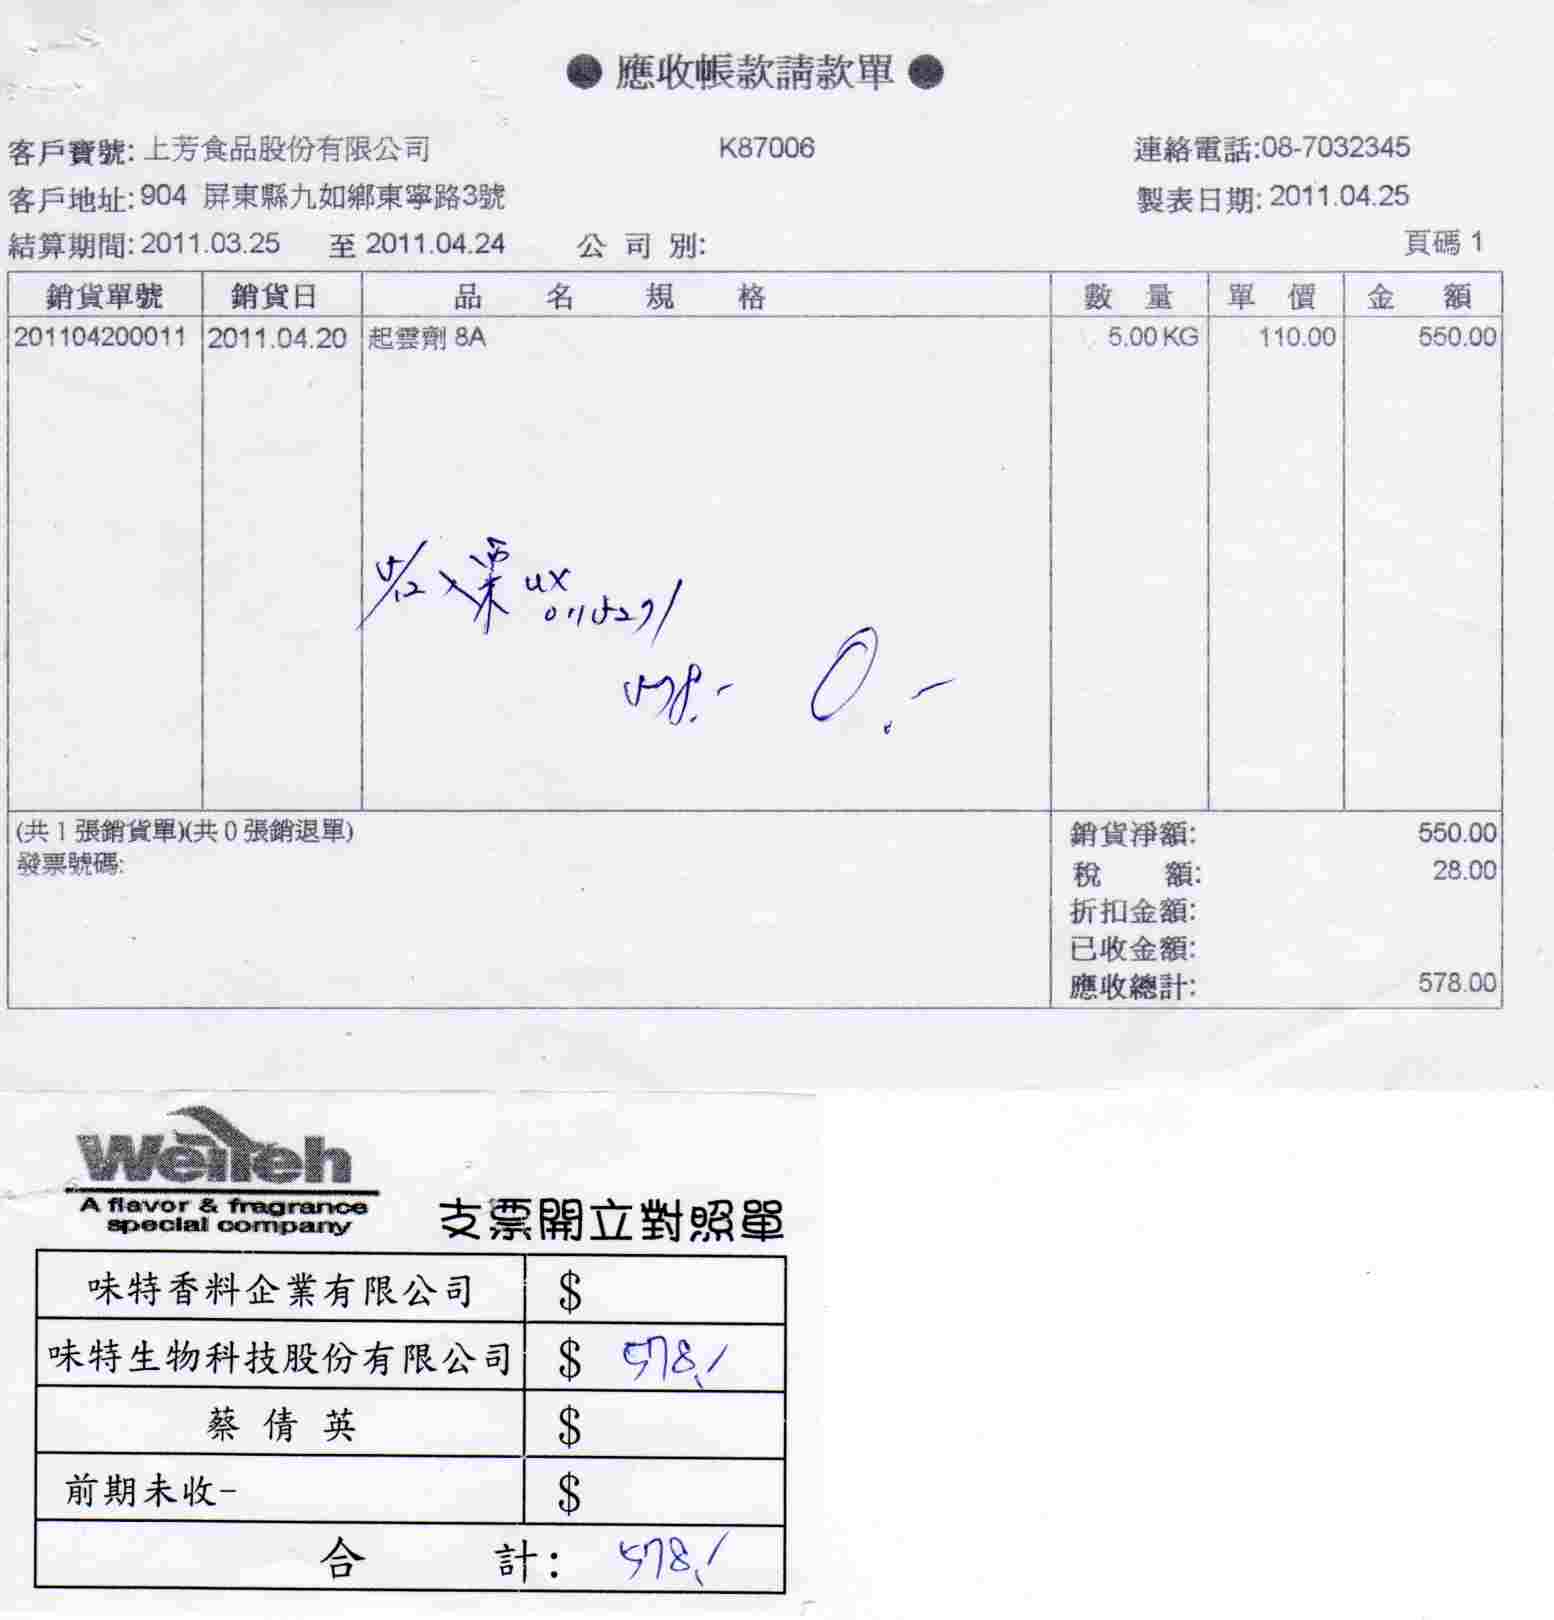 ● 應收帳款請款單 ●
客戶寶號: 上芳食品股份有限公司 K87006 連絡電話:08-7032345
客戶地址: 904 屏東縣九如鄉東寧路3號 製表日期: 2011.04.25
結算期間: 2011.03.25 至 2011.04.24 公 司 別: 頁碼 1
銷貨單號 銷貨日 品 名 規 格 數 量 單 價 金 額
201104200011 2011.04.20 起雲劑 8A 5.00 KG 110.00 550.00
5/12 票 UX
0115271
578.- 0.-
(共 1 張銷貨單)(共 0 張銷退單) 銷貨淨額: 550.00
發票號碼: 稅 額: 28.00
折扣金額:
已收金額:
應收總計: 578.00
WeiTeh
A flavor & fragrance
special company
支票開立對照單
味特香料企業有限公司 $
味特生物科技股份有限公司 $ 578./
蔡 倩 英 $
前期未收- $
合 計: 578./